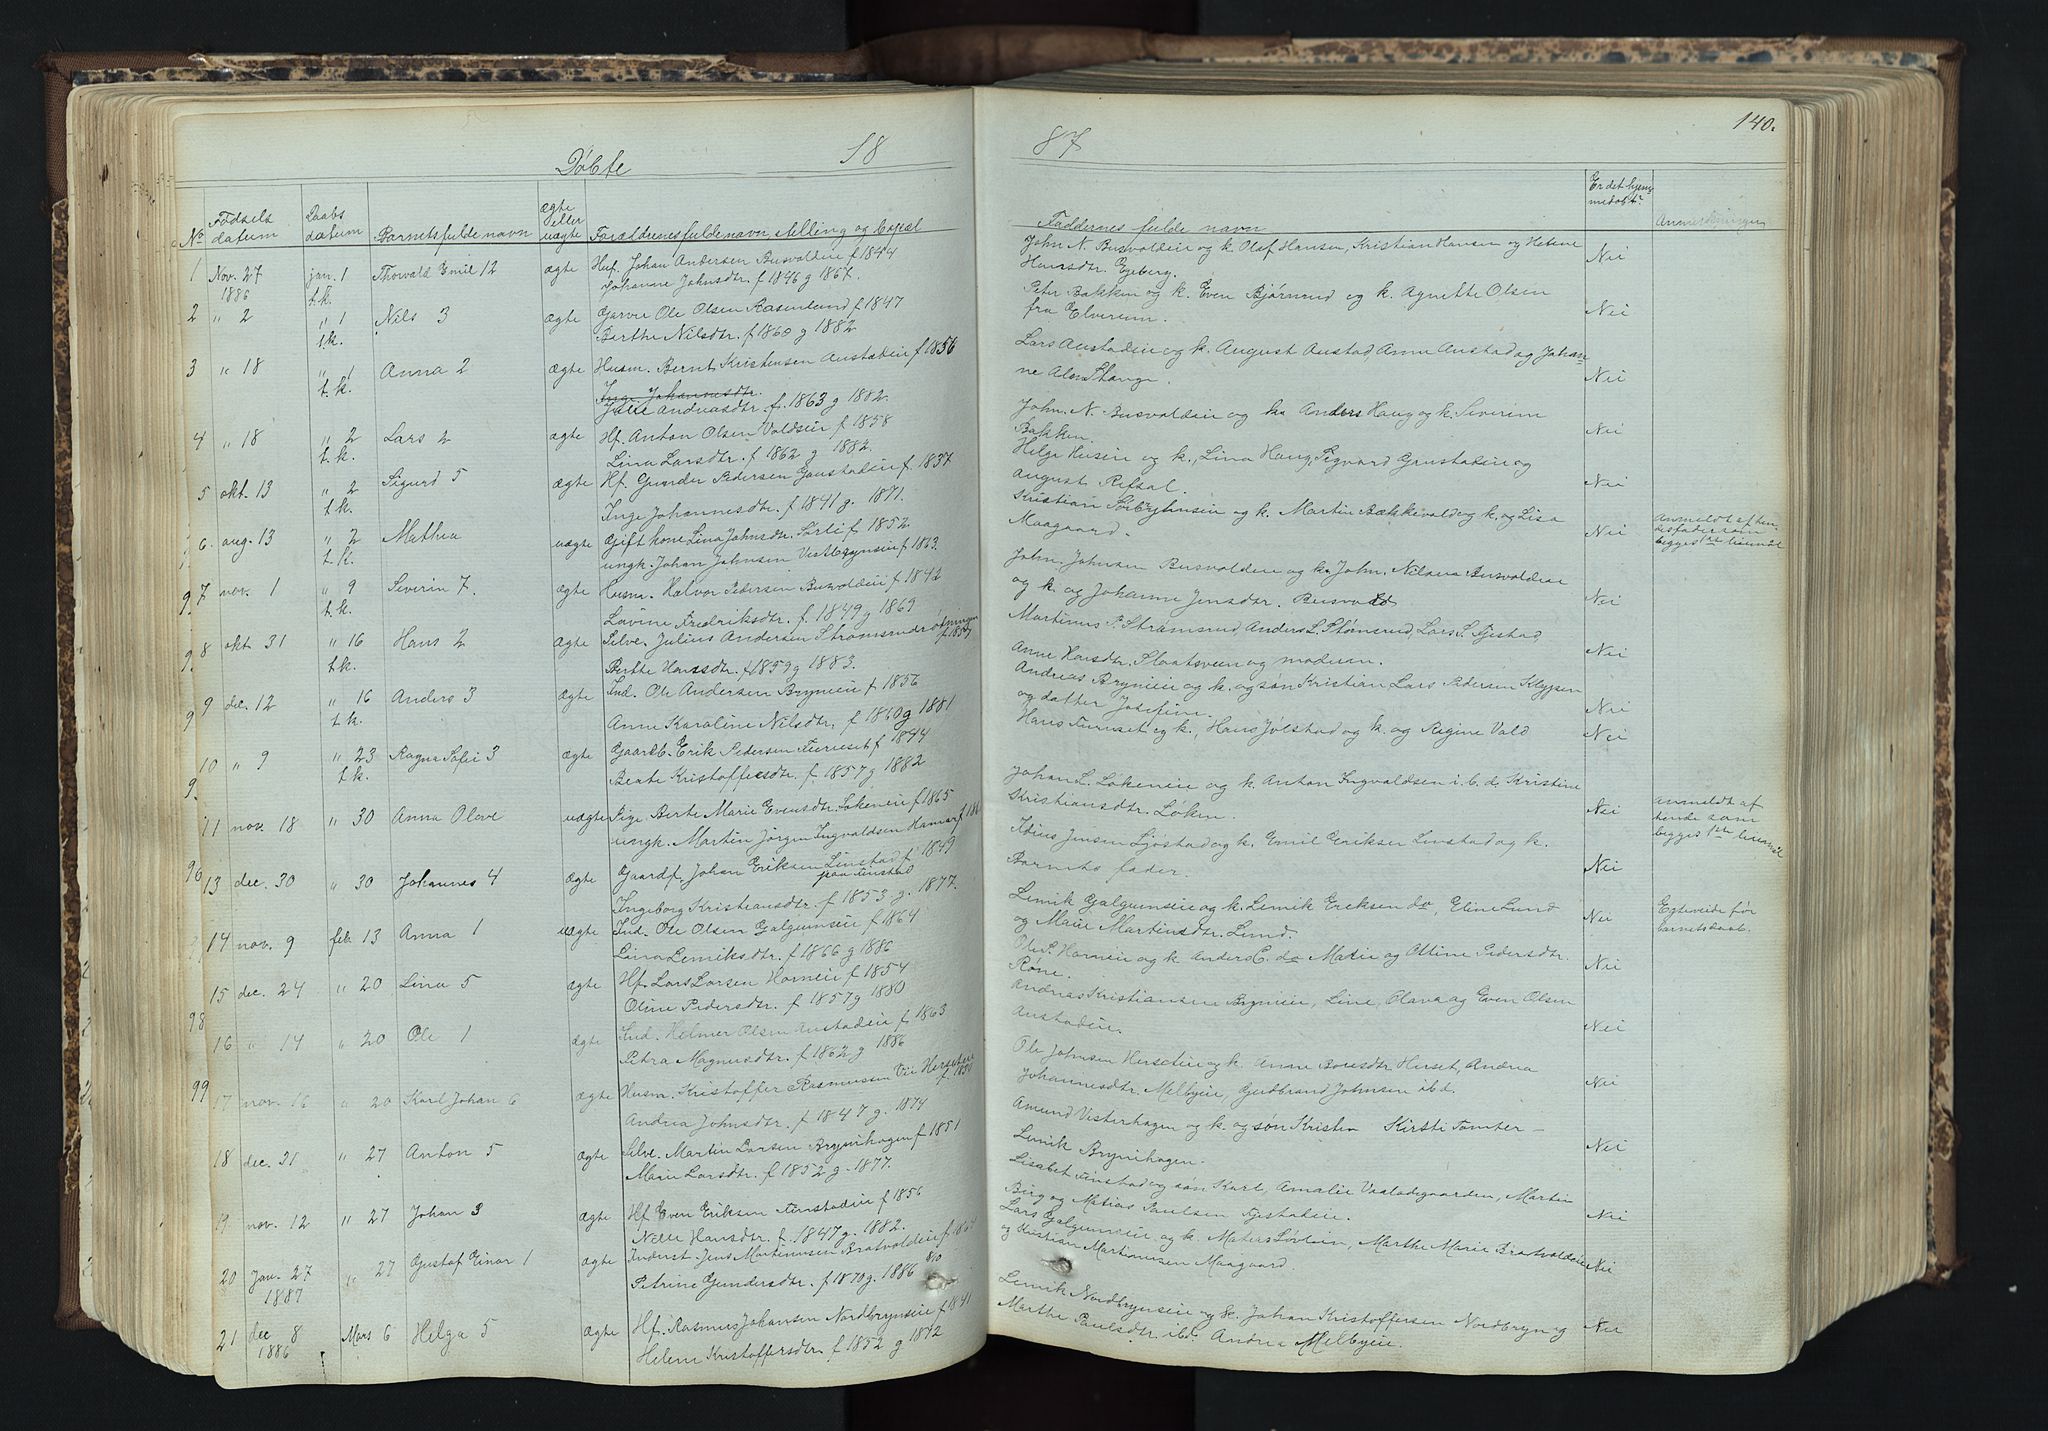 140.
Døbte 18 87
No Fødsels datum Daabs datum Barnets fulde navn ægte eller uægte Forældrenes fulde navn, stilling og bopæl
Faddernes fulde navn Er det hjemmedøbt? Anmerkninger
1 Nov. 27 1886 jan. 1 t.k. Thorvald Emil 12 ægte Huf. Johan Andersen Busvoldeie f 1844
Johanne Johnsdtr. f 1846 g 1867.
John N. Busvoldeie og k. Olaf Hansen, Kristian Hansen og Helene
Hansdtr. Egeberg. Nei
2 " 2 " 1 t.k. Nils 3 ægte Garver Ole Olsen Rasenlund f 1847
Berthe Nilsdtr. f 1860 g 1882
Peter Bakken og k. Even Bjørnrud og k. Agnethe Olsen
fra Elverum. Nei
3 " 18 " 1 t.k. Anna 2 ægte Husm. Bernt Kristensen Anstadeie f 1856
Inge Johannesdtr.
Julie Andreasdtr. f. 1863 g 1882.
Lars Anstadeie og k. August Anstad Anne Anstad og Johan-
ne Alm Stange. Nei
4 " 18 " 2 t.k. Lars 2 ægte Hf. Anton Olsen Voldseie f 1858
Lina Larsdtr. f 1862 g 1882.
John. N. Busvoldeie og k. Anders Haug og k. Severine
Bakken. Nei
5 okt. 13 " 2 t.k. Sigurd 5 ægte Hf. Gunder Pedersen Gaustadeie f. 1837
Inge Johannesdtr. f 1841 g. 1871.
Helge Huseie og k., Lina Haug, Sigvard Gaustadeie og
August Refsal. Nei
6. aug. 13 " 2 t.k. Mathea uægte Gift kone Lina Johnsdtr. Sørlie f 1852
ungk. Johan Johnsen Vestbryneie f 1863.
Kristian Sørbryhnseie og k. Martin Bækkevold og k. og Lisa
Maagaard. Nei
7 nov. 1 " 9 t.k. Severin 7 ægte Husm. Halvor Pedersen Busvoldeie f 1842
Lovine Fredriksdtr. f. 1849 g 1869
John. Johnsen Busvoldeie og k. John. Nilsen Busvoldeie
og k. og Johanne Jensdtr. Busvold Nei
8 okt 31 " 16 t.k. Hans 2 ægte Selve. Julius Andersen Strømsrudrødningen
Berthe Hansdtr. f 1859 g 1883.
Martinus P. Strømsrud, Anders L. Strømsrud, Lars S. Fjestad,
Anne Hansdtr. Slaatsveen og moderen. Nei
9 dec. 12 " 16 t.k. Anders 3 ægte Ind. Ole Andersen Bryneie f 1856
Anne Karoline Nilsdtr. f 1860 g 1881
Andreas Bryneie og k. og søn Kristian Lars Pedersen Klypen
og datter Josefine. Nei
10 " 9 " 23 t.k. Ragna Sofie 3 ægte Gaardb. Erik Pedersen Furuset f 1844
Beate Kristoffersdtr. f 1857 g 1882
Hans Furuset og k., Hans Jølstad og k. og Regine Vold Nei
11 nov. 18 " 30 Anna Olave uægte Pige. Berte Marie Evensdtr. Løkeneie f 1865
ungk. Martin Jørgen Ingvaldsen Hamar
Johan L. Løkeneie og k. Anton Ingvaldsen i.b.d. Kristine
Kristiansdtr. Løken. Nei
13 dec. 30 " 30 Johannes 4 ægte Gaardf. Johan Eriksen Linstad f 1849
paa Finstad
Ingeborg Kristiansdtr. f 1853 g. 1877.
Jensen Sjøstad og k. Emil Eriksen Linstad og k.
Barnets fader. Nei
14 nov. 9 feb 13 Anna 1 uægte Ind. Ole Olsen Galgumseie f 1864
Lina Lemiksdtr. f 1866 g 1886
Lemik Galgumseie og k. Lemik Eriksen do, Eline Lund
og Marie Martinsdtr. Lund. Nei
15 dec. 24 " 20 Lina 5 ægte Hf. Lars Larsen Horneie f 1854
Oline Pedersdtr. f 1857 g 1880
Ole S. Horneie og k Anders C. do Matie og Ottine Pedersdtr.
Røne. Nei
16 " 14 " 20 Ole 1 ægte Ind. Helmer Olsen Anstadeie f 1863
Petra Magnusdtr. f 1862 g 1886
Andreas Kristiansen Bryneie, Line, Olava og Even Olsen
Anstadeie. Nei
17 nov. 16 " 20 Karl Johan 6 ægte Husm. Kristoffer Rasmussen Vii Herseteie
Andrea Johnsdtr. f 1847 g. 1874
Ole Johnsen Herseteie og k. Anne Boresdtr Herset, Andrea
Johannesdtr. Melbyeie, Gudbrand Johnsen ibd. Nei
18 dec. 31 " 27 Anton 5 ægte Selve. Martin Larsen Brynihagen f 1851
Marie Larsdtr. f 1852 g. 1877.
Amund Vesterhagen og k. og søn Kristen Kirsti Tomter -
Lemik Brynihagen. Nei
19. nov. 12 " 27 Johan 3 ægte Hf. Even Eriksen Finstadeie f 1856
Nille Hansdtr. f. 1847 g. 1882.
Lisabet Finstad og søn Karl, Amalie Vaaladgaarden, Martin
Birg og Matias Paulsen Fjestadeie. Nei
20 Jan. 27 1887 " 27 Gustaf Einar 1 ægte Inderst. Jens Martinusen Bratvoldeie f 1864
Petrine Gundersdtr. f 1870 g. 1886
Lars Galgumeie og k. Mater Løvlien, Marthe Marie Bratvoldeie
og Kristian Martinusen Maagaard. Nei
21 dec 8 1886 Mars 6 Helga 5 ægte Hf. Rasmus Johansen Nordbryneie f 1841
Helene Kristoffersdtr. f 1852 g 1872
Lemik Nordbryneie og k. Johan Kristoffersen Nordbryn og
Marthe Paulsdtr. ibd. Andrea Melbyeie. Nei